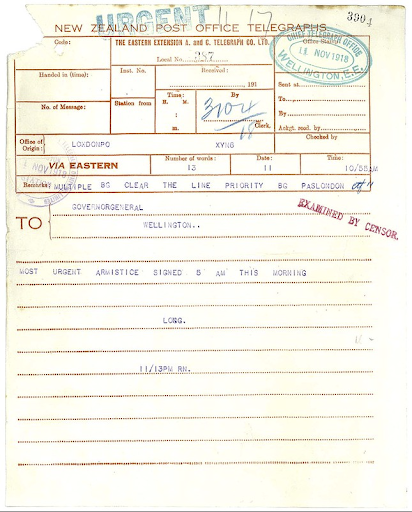 URGENT 11 17
NEW ZEALAND POST OFFICE TELEGRAPHS. 3904
Code: THE EASTERN EXTENSION A. and C. TELEGRAPH CO. LTD. Office Stamp
CHIEF TELEGRAPH OFFICE
11 NOV 1918
WELLINGTON, E.E.
Local No. 287
Handed in (time): Inst. No. Received: , 191
Sent at
No. of Message: Station from Time: H. M. : m. By Clerk.
To
By
Ackgt. recd. by
Office of Origin: LONDONPO XYN6 Checked by
VIA EASTERN Number of words: 13 Date: 11 Time: 10/55 M
Remarks: MULTIPLE BG CLEAR THE LINE PRIORITY BG PASLONDON
NOV 1918
TO GOVERNORGENERAL
WELLINGTON..
EXAMINED BY CENSOR.
MOST URGENT ARMISTICE SIGNED 5 AM THIS MORNING
LONG.
11/13PM RN.